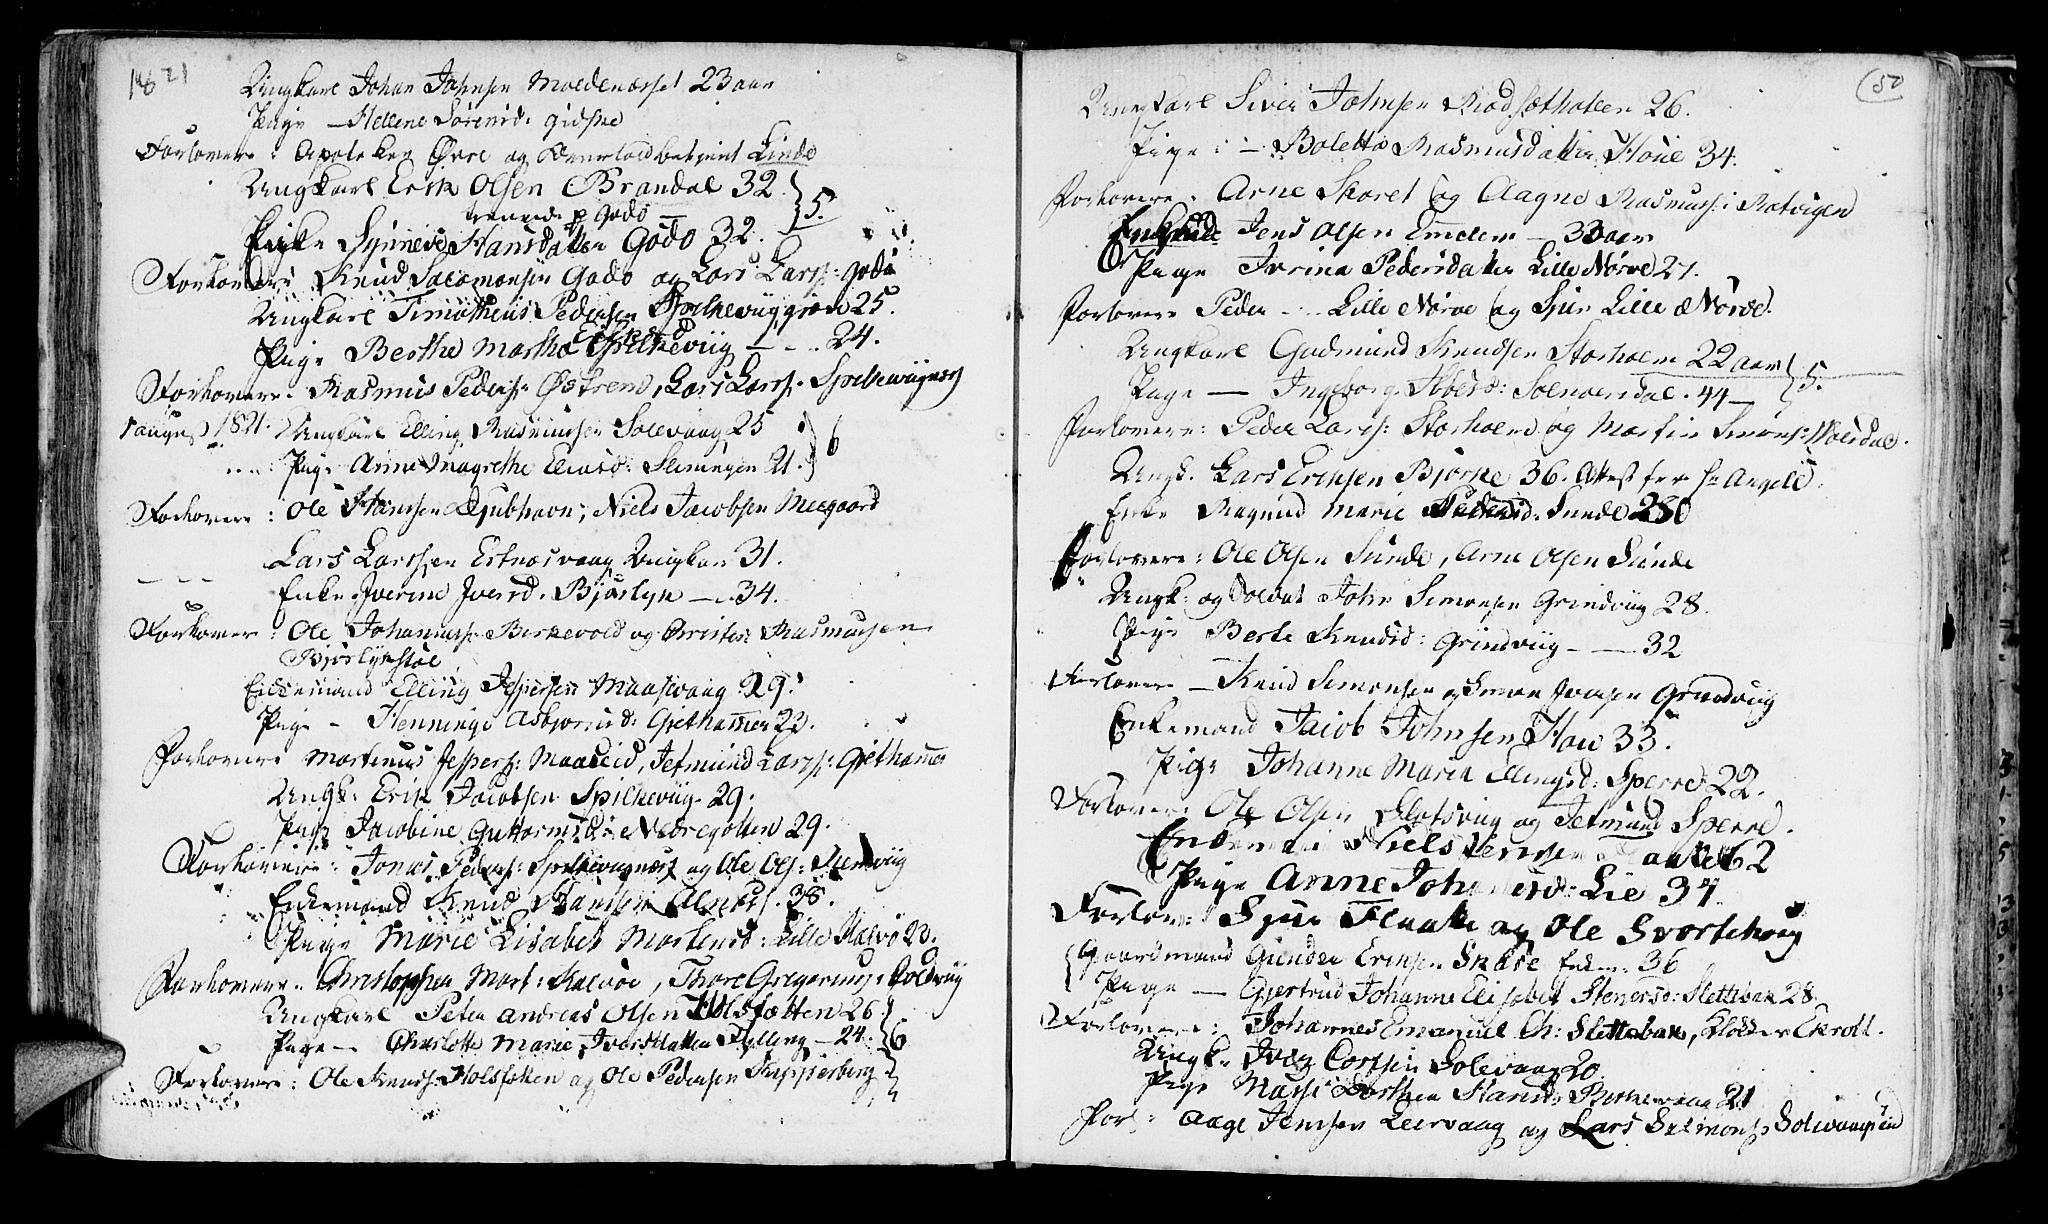 1821
Ungkarl Johan Johnsen Moldenæsset 23 aar
Pige — Hellene Sørensd: Gidske
Forlovere: Apoteker Øvre og Linde
Ungkarl Erik Olsen Brandal 32 } 5.
tienende p Godø
Pige Synneve Hansdatter Godø 32.
Forlovere: Knud Salomonsen Godø og Lars Larss: Godø
Ungkarl Timotheus Pedersen 25.
Pige Berthe Marthe Spilkeviig — 24.
Forlovere. Rasmus Peders: Østrem, Lars Larss: Spilkeviignes
1 august 1821. Ungkarl Elling Rasmussen Solevaag 25 } 6
Pige Anne Magrethe Eliasd: Slemingen 21.
Forlovere: Ole Hanssen Djubhavn, Niels Jacobsen Meegaard
Lars Larssen Estnæsvaag Ungkar 31.
Enke Iverine Iversd. Bjørlyk — 34.
Forlovere: Ole Johanness: Birkevold og Christen Rasmussen
Bjørlykstøl
Enkemand Elling Jespersen Maasvaag 29.
Pige — Henninge Asbjørnsd: Gjethammer 23.
Forlovere Martinus Jespers: Maaseid, Jetmund Larss: Gjethammer
Ungk. Erik Jacobsen Spilkeviig 29.
Pige Jacobine Guttormsd: Nedregotten 29.
Forlovere: Jonas Peders: Spilkevignæs og Ole Ols: Stenviig
Enkemand Knud Hanssen Alnæs. 38.
Pige Marie Lisabet Martensd: Lille Kalvø 23.
Forlovere. Christopher Mort: Kalvøe, Thore Gregoriuss: Soldviig
Ungkarl Peter Andreas Olsen Holsfætten 26 } 6
Pige — Charlotte Marie Iversdatter Fylling — 24.
Forlovere: Ole Knuds: Holsfæten og Ole Pedersen Kipperberg
50
Ungkarl Siver Johnsen Rødsæthølen 26.
Pige: — Bolette Rasmusdatter Houe 34.
Forlovere: Arne Skoret og Aagne Rasmuss: Ratvigen
Jens Olsen Emblem — 33 aar
Pige Ivrina Pedersdatter Lille Nørve 27.
Forlovere Peder — Lille Nørve og Sjur Lille Nørve.
Ungkarl Gudmund Knudsen Storholm 22 aar } 5.
Pige — Ingeborg Ibsd: Solnørdal. 44 —
Forlovere: Peder Larss: Storholm og Martin Simons: Walsdal.
Ungk. Lars Eriksen Bjørke 36. Attest fra Hr Angell.
Enke Ragnild Marie Pedersd: Sunde 28
Forlovere: Ole Olsen Sunde, Arne Olsen Sunde
Ungk: og Soldat John Simonsen Grindviig 28.
Pige Berte Knudsd: Grindviig — 32
Forlovere — Knud Simonsen og Simon Iversen Grindviig
Enkemand Jacob Johnsen Houe 33.
Pige Johanne Maria Ellingsd: Sperre 22.
Forlovere: Ole Olsen Slotsviig og Jetmund Sperre.
Niels 62
Pige Anne Lie 34.
Forlov: Sjur Flaate og Ole Svortehoug
Gaardmand Gunder Eriksen Skare Enkm: 36
Pige — Gjertrud Johanne Elisabet Stenersd: Slettebak 28.
Forlovere: Johannes Emanuel Ch: Slettebak, Ekroll.
Ungk. Iver Solevaag 20
Pige Dorthea Hansd: Birkevaag 21
Forl: Aage Jensen Leervaag og Lars Salmons: Solevaagseid